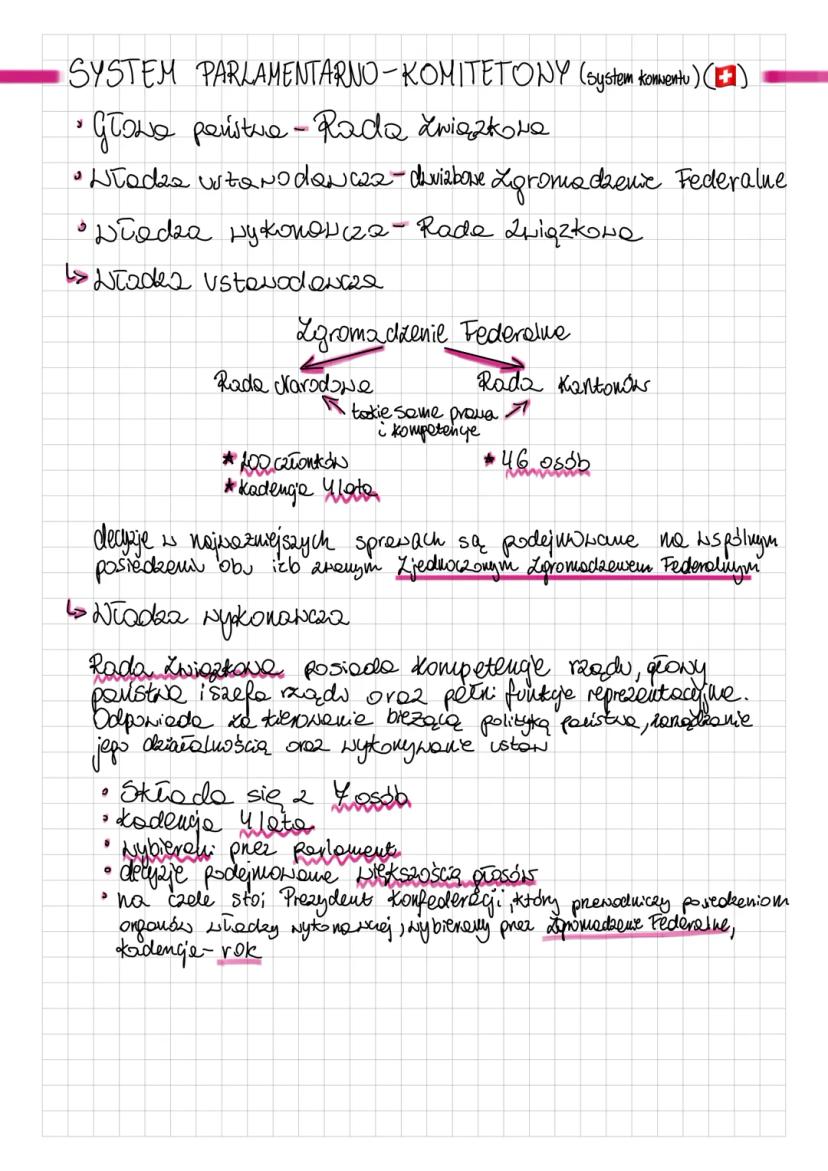 SYSTEM PARLAMENTARNO-KOMITETOWY (system konwentu) (🇨🇭)
• Głowa państwa - Rada Związkowa
• Władza ustawodawcza - dwuizbowe Zgromadzenie Federalne
• Władza wykonawcza - Rada Związkowa
↳ Władza ustawodawcza
Zgromadzenie Federalne
Rada Narodowa Rada Kantonów
takie same prawa
i kompetencje
* 200 członków * 46 osób
* kadencja 4 lata
decyzje w najważniejszych sprawach są podejmowane na wspólnym
posiedzeniu obu izb zwanym Zjednoczonym Zgromadzeniem Federalnym
↳ Władza wykonawcza
Rada Związkowa posiada kompetencje rządu, głowy
państwa i szefa rządu oraz pełni funkcje reprezentacyjne.
Odpowiada za kierowanie bieżącą polityką państwa, zarządzanie
jego działalnością oraz wykonywanie ustaw
• Składa się z 7 osób
• kadencja 4 lata
• wybierani przez parlament
• decyzje podejmowane większością głosów
• na czele stoi Prezydent Konfederacji, który przewodniczy posiedzeniom
organów władzy wykonawczej, wybierany przez Zgromadzenie Federalne,
kadencja - rok